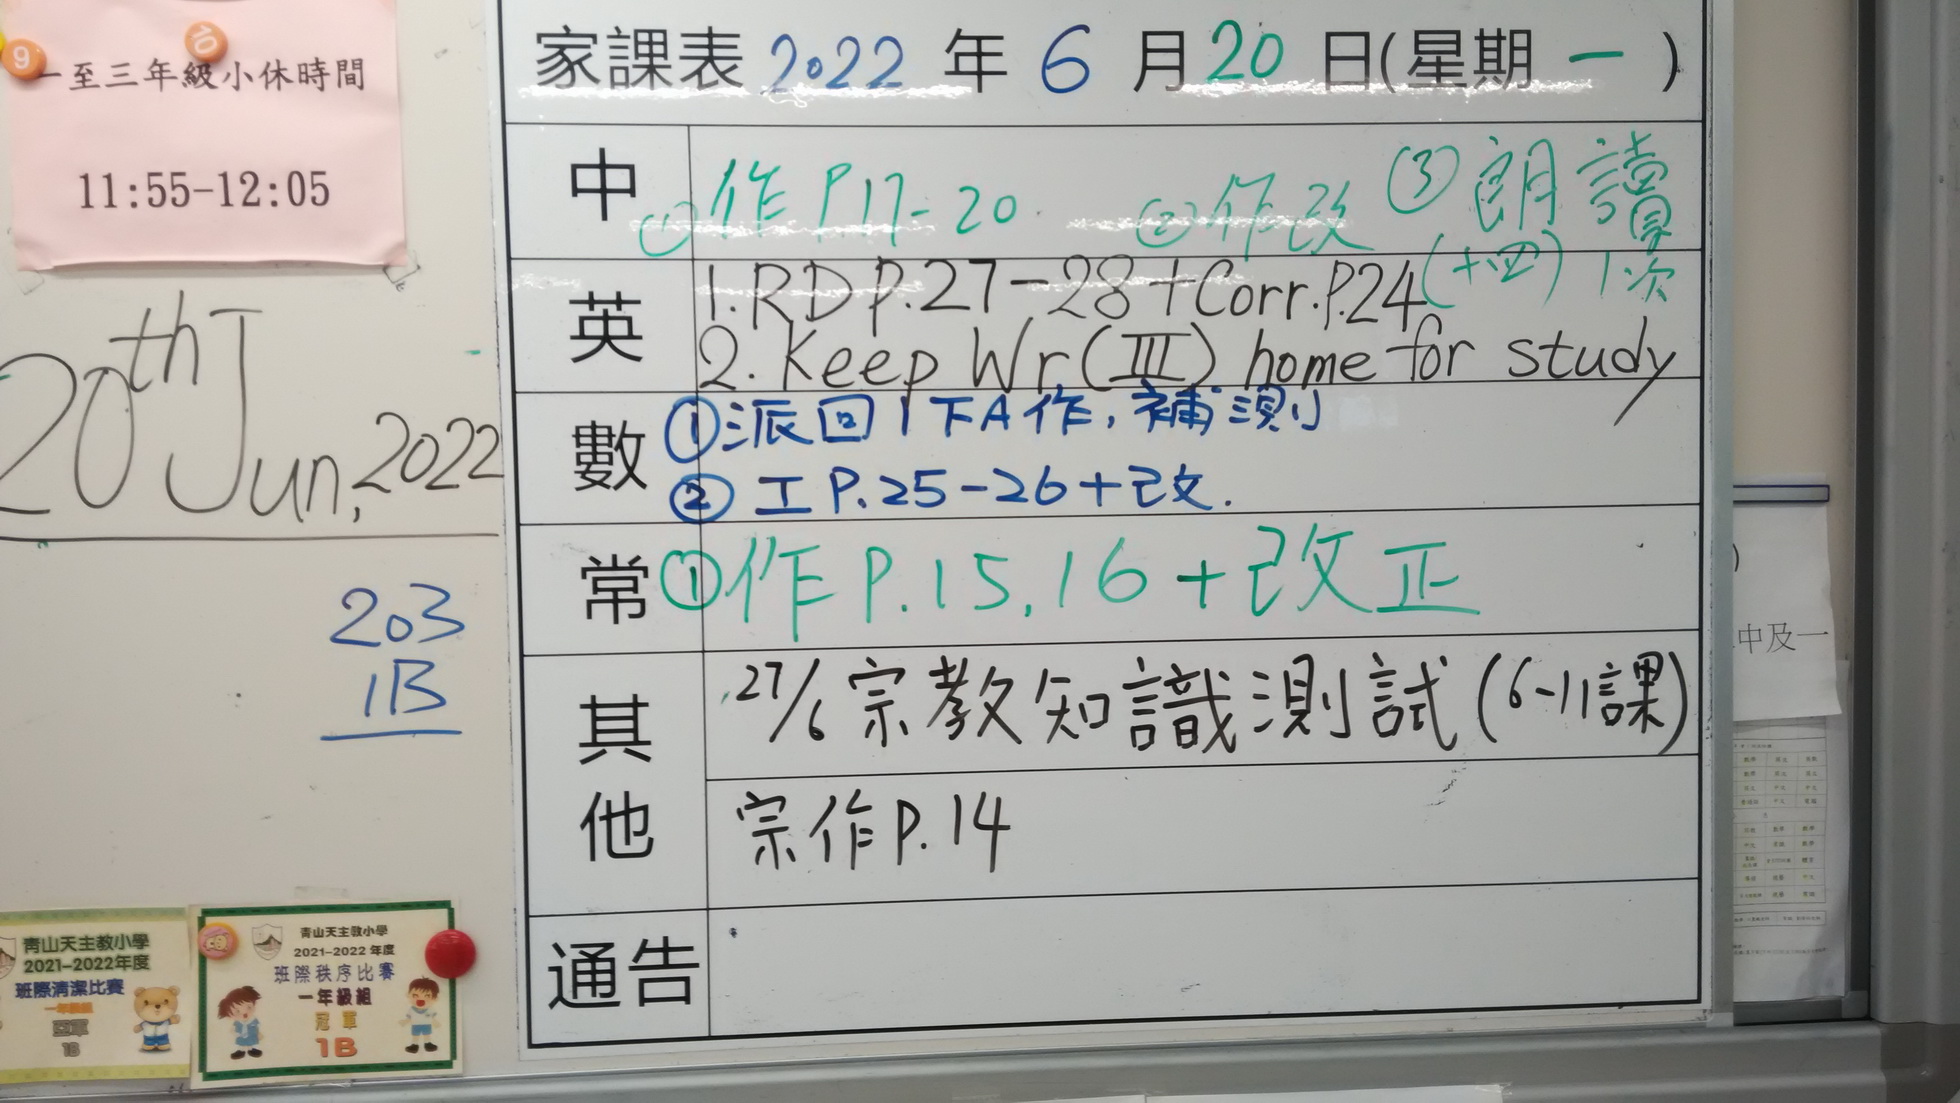 9
10
一至三年級小休時間
11:55-12:05
20th Jun, 2022
203
1B
家課表 2022 年 6 月 20 日(星期 一 )
中
① 作 P.17-20 ② 作改 ③ 朗讀
(十四) 1次
英
1. RD P.27-28+Corr.P.24
2. Keep Wr(III) home for study
數
① 派回1下A作, 補測
② 工 P.25-26+改.
常
① 作 P.15,16+改正
其他
27/6 宗教知識測試(6-11課)
宗作P.14
通告
青山天主教小學
2021-2022年度
班際清潔比賽
一年級組
亞軍
1B
青山天主教小學
2021-2022 年度
班際秩序比賽
一年級組
冠軍
1B
中及一